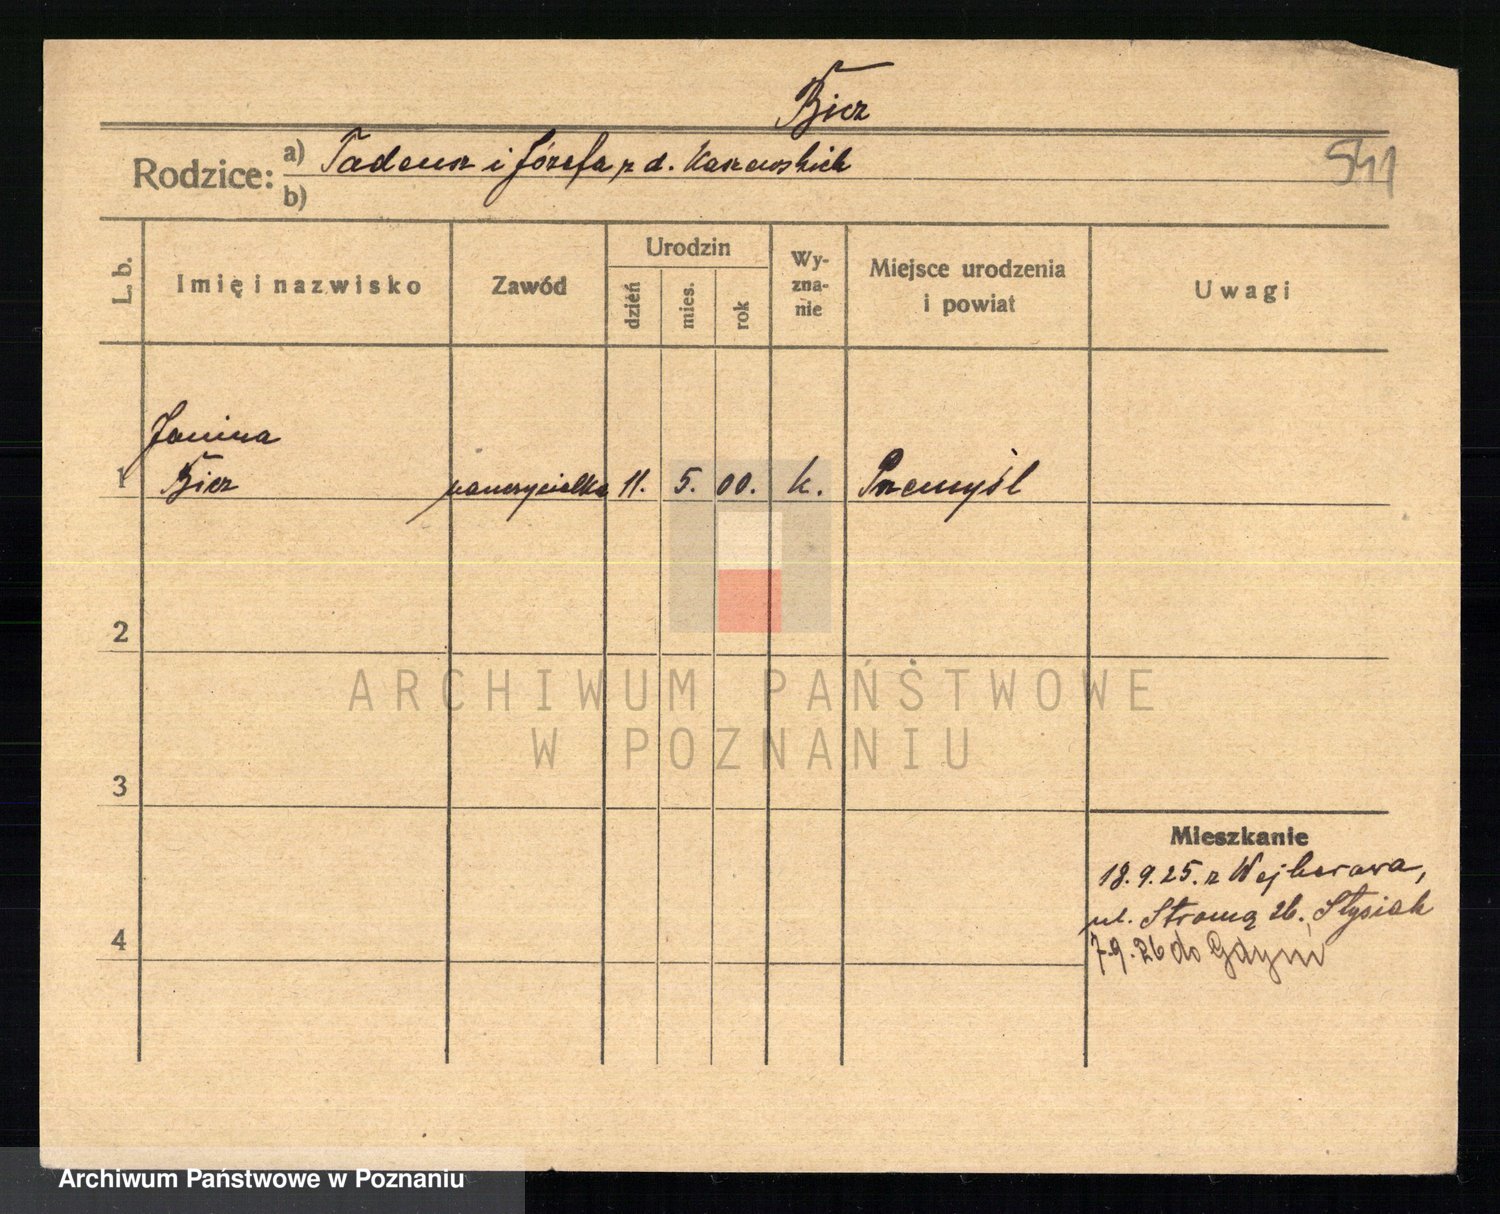 Bicz
Rodzice: a) Tadeusz i Józefa z d. Kaszewskich
b)
541
L. b.
Imię i nazwisko
Zawód
Urodzin
dzień
mies.
rok
Wy-
zna-
nie
Miejsce urodzenia
i powiat
Uwagi
Janina
1 Bicz nauczycielka 11. 5. 00. k. Przemyśl
2
ARCHIWUM PAŃSTWOWE
W POZNANIU
3
Mieszkanie
18.9.25. z Wejherowa,
ul. Stroma 26, Stysiak
4
7.9.26 do Gdyni
Archiwum Państwowe w Poznaniu